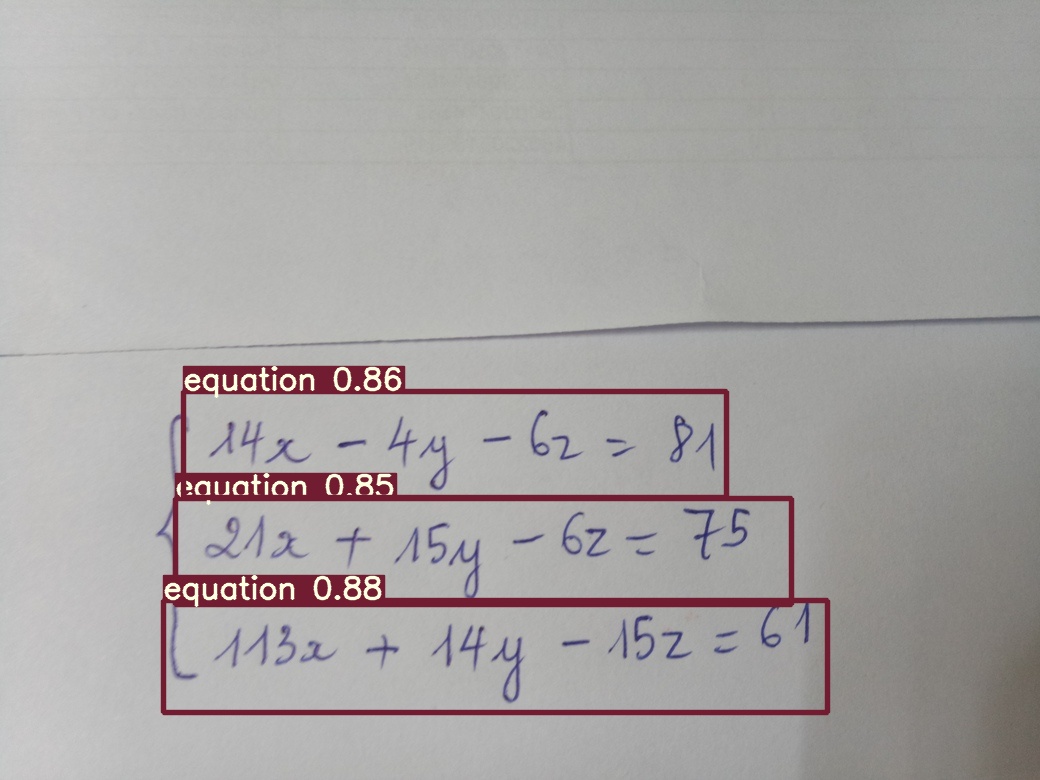 equation 0.86
14x - 4y - 6z = 81
equation 0.85
21x + 15y - 6z = 75
equation 0.88
113x + 14y - 15z = 61